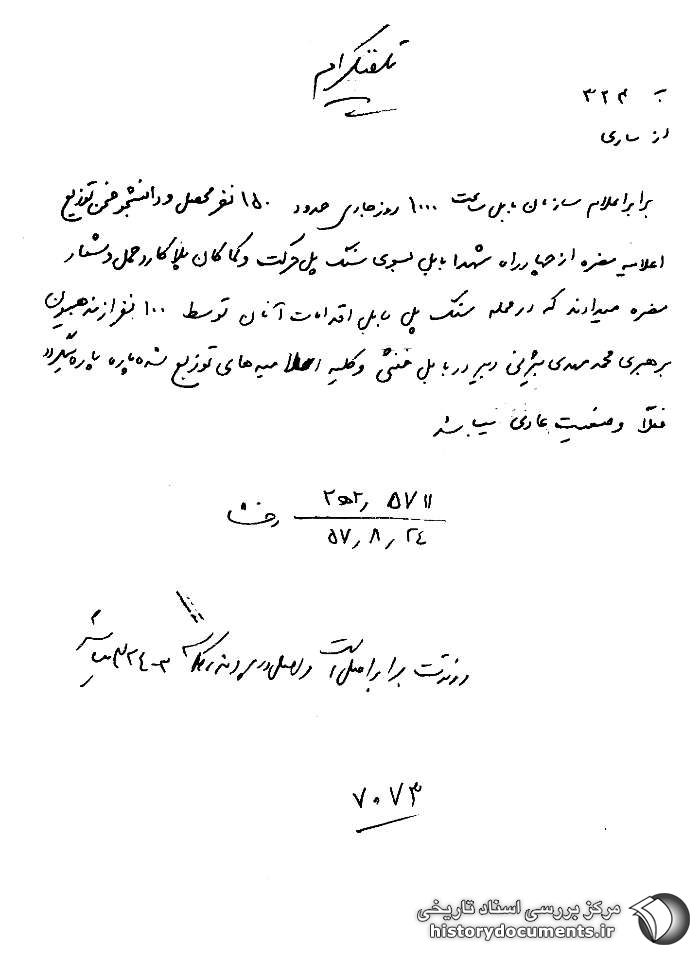 تلفنگرام
به ۳۲۴
از ساری
برابر اعلام سازمان بابل ساعت ۱۰۰۰ روز جاری حدود ۱۵۰ نفر محصل و دانشجو ضمن توزیع
اعلامیه مضره از چهارراه شهدا بابل بسوی سنگ پل حرکت و کماکان پلاکارد حمل و شعار
مضره میدادند که در محله سنگ پل بابل اقدامات آنان توسط ۱۰۰ نفر از مذهبیون
برهبری محمد مهدی دبیر در بابل خنثی و کلیه اعلامیه‌های توزیع شده پاره پاره
فعلاً وضعیت عادی میباشد
۲ه۲٫ ۵۷۱۱
۵۷٫۸٫۲٤
رونوشت برابر اصل است و اصل در پرونده کلاسه ۳-۳۲٤ میباشد
۷۰۷۳
مرکز بررسی اسناد تاریخی
historydocuments.ir